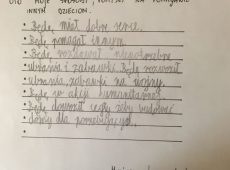 INNYM DZIECIOM.
• Będę miał dobre serce.
• Będę pomagał innym.
• Będę rozdawał niepotrzebne
ubrania i zabawki. Będę rozwoził
• ubrania, zabawki na wojny.
• Będę w akcji humanitarnej.
• Będę dowoził cegły żeby budować
• domy dla potrzebujących.